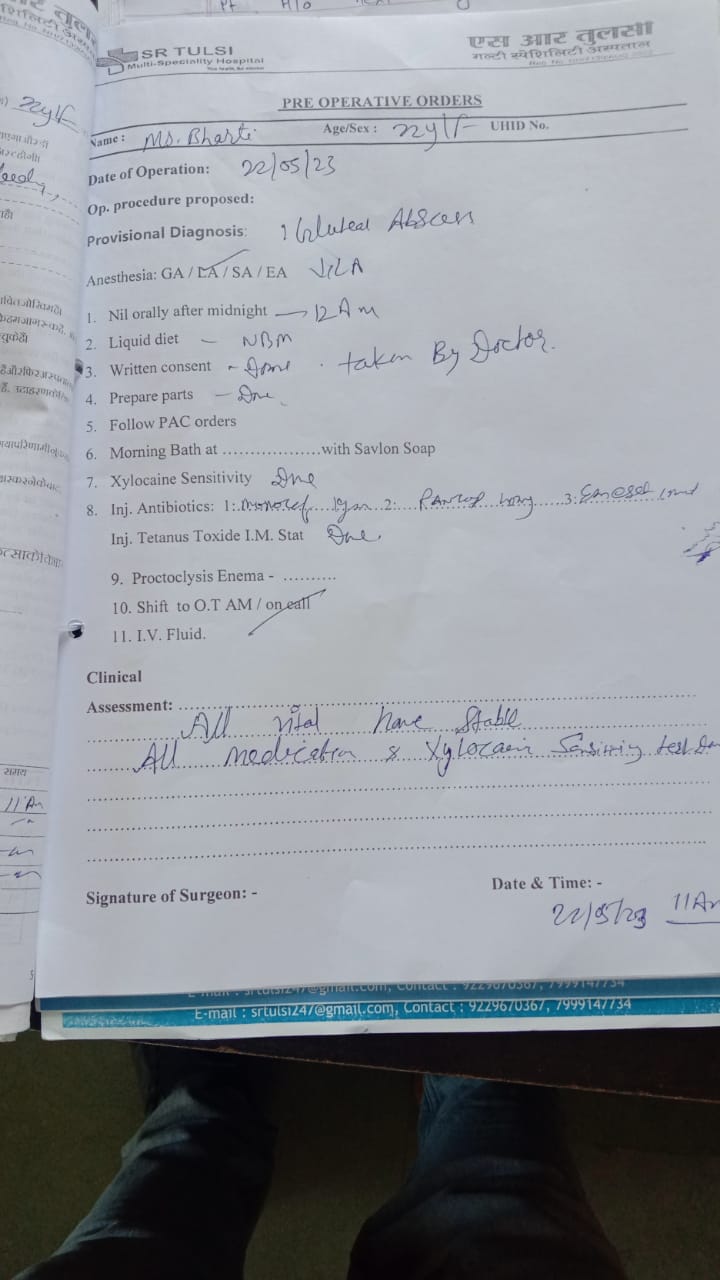 Pt H/o
SR TULSI
Multi-Speciality Hospital
एस आर तुलसी
मल्टी स्पेशिलिटी अस्पताल
PRE OPERATIVE ORDERS
Name : Ms. Bharti Age/Sex : 22y/F UHID No.
Date of Operation: 22/05/23
Op. procedure proposed:
Provisional Diagnosis: Gluteal Abscess
Anesthesia: GA / LA / SA / EA
1. Nil orally after midnight → 12 Am
2. Liquid diet - NBM
3. Written consent - Done . taken By Doctor.
4. Prepare parts - Done.
5. Follow PAC orders
6. Morning Bath at ..................with Savlon Soap
7. Xylocaine Sensitivity Done
8. Inj. Antibiotics: 1:. monocef 1gm 2: Pantop 40mg 3:
Inj. Tetanus Toxide I.M. Stat Done.
9. Proctoclysis Enema - ..........
10. Shift to O.T AM / on call
11. I.V. Fluid.
Clinical
Assessment:
All vital have Stable
All medication & Xylocain Sensitivity test
Signature of Surgeon: - Date & Time: -
22/05/23 11 Am
E-mail : srtulsi247@gmail.com, Contact : 9229670367, 7999147734
E-mail : srtulsi247@gmail.com, Contact : 9229670367, 7999147734
22y/F
समय
11 Am
5